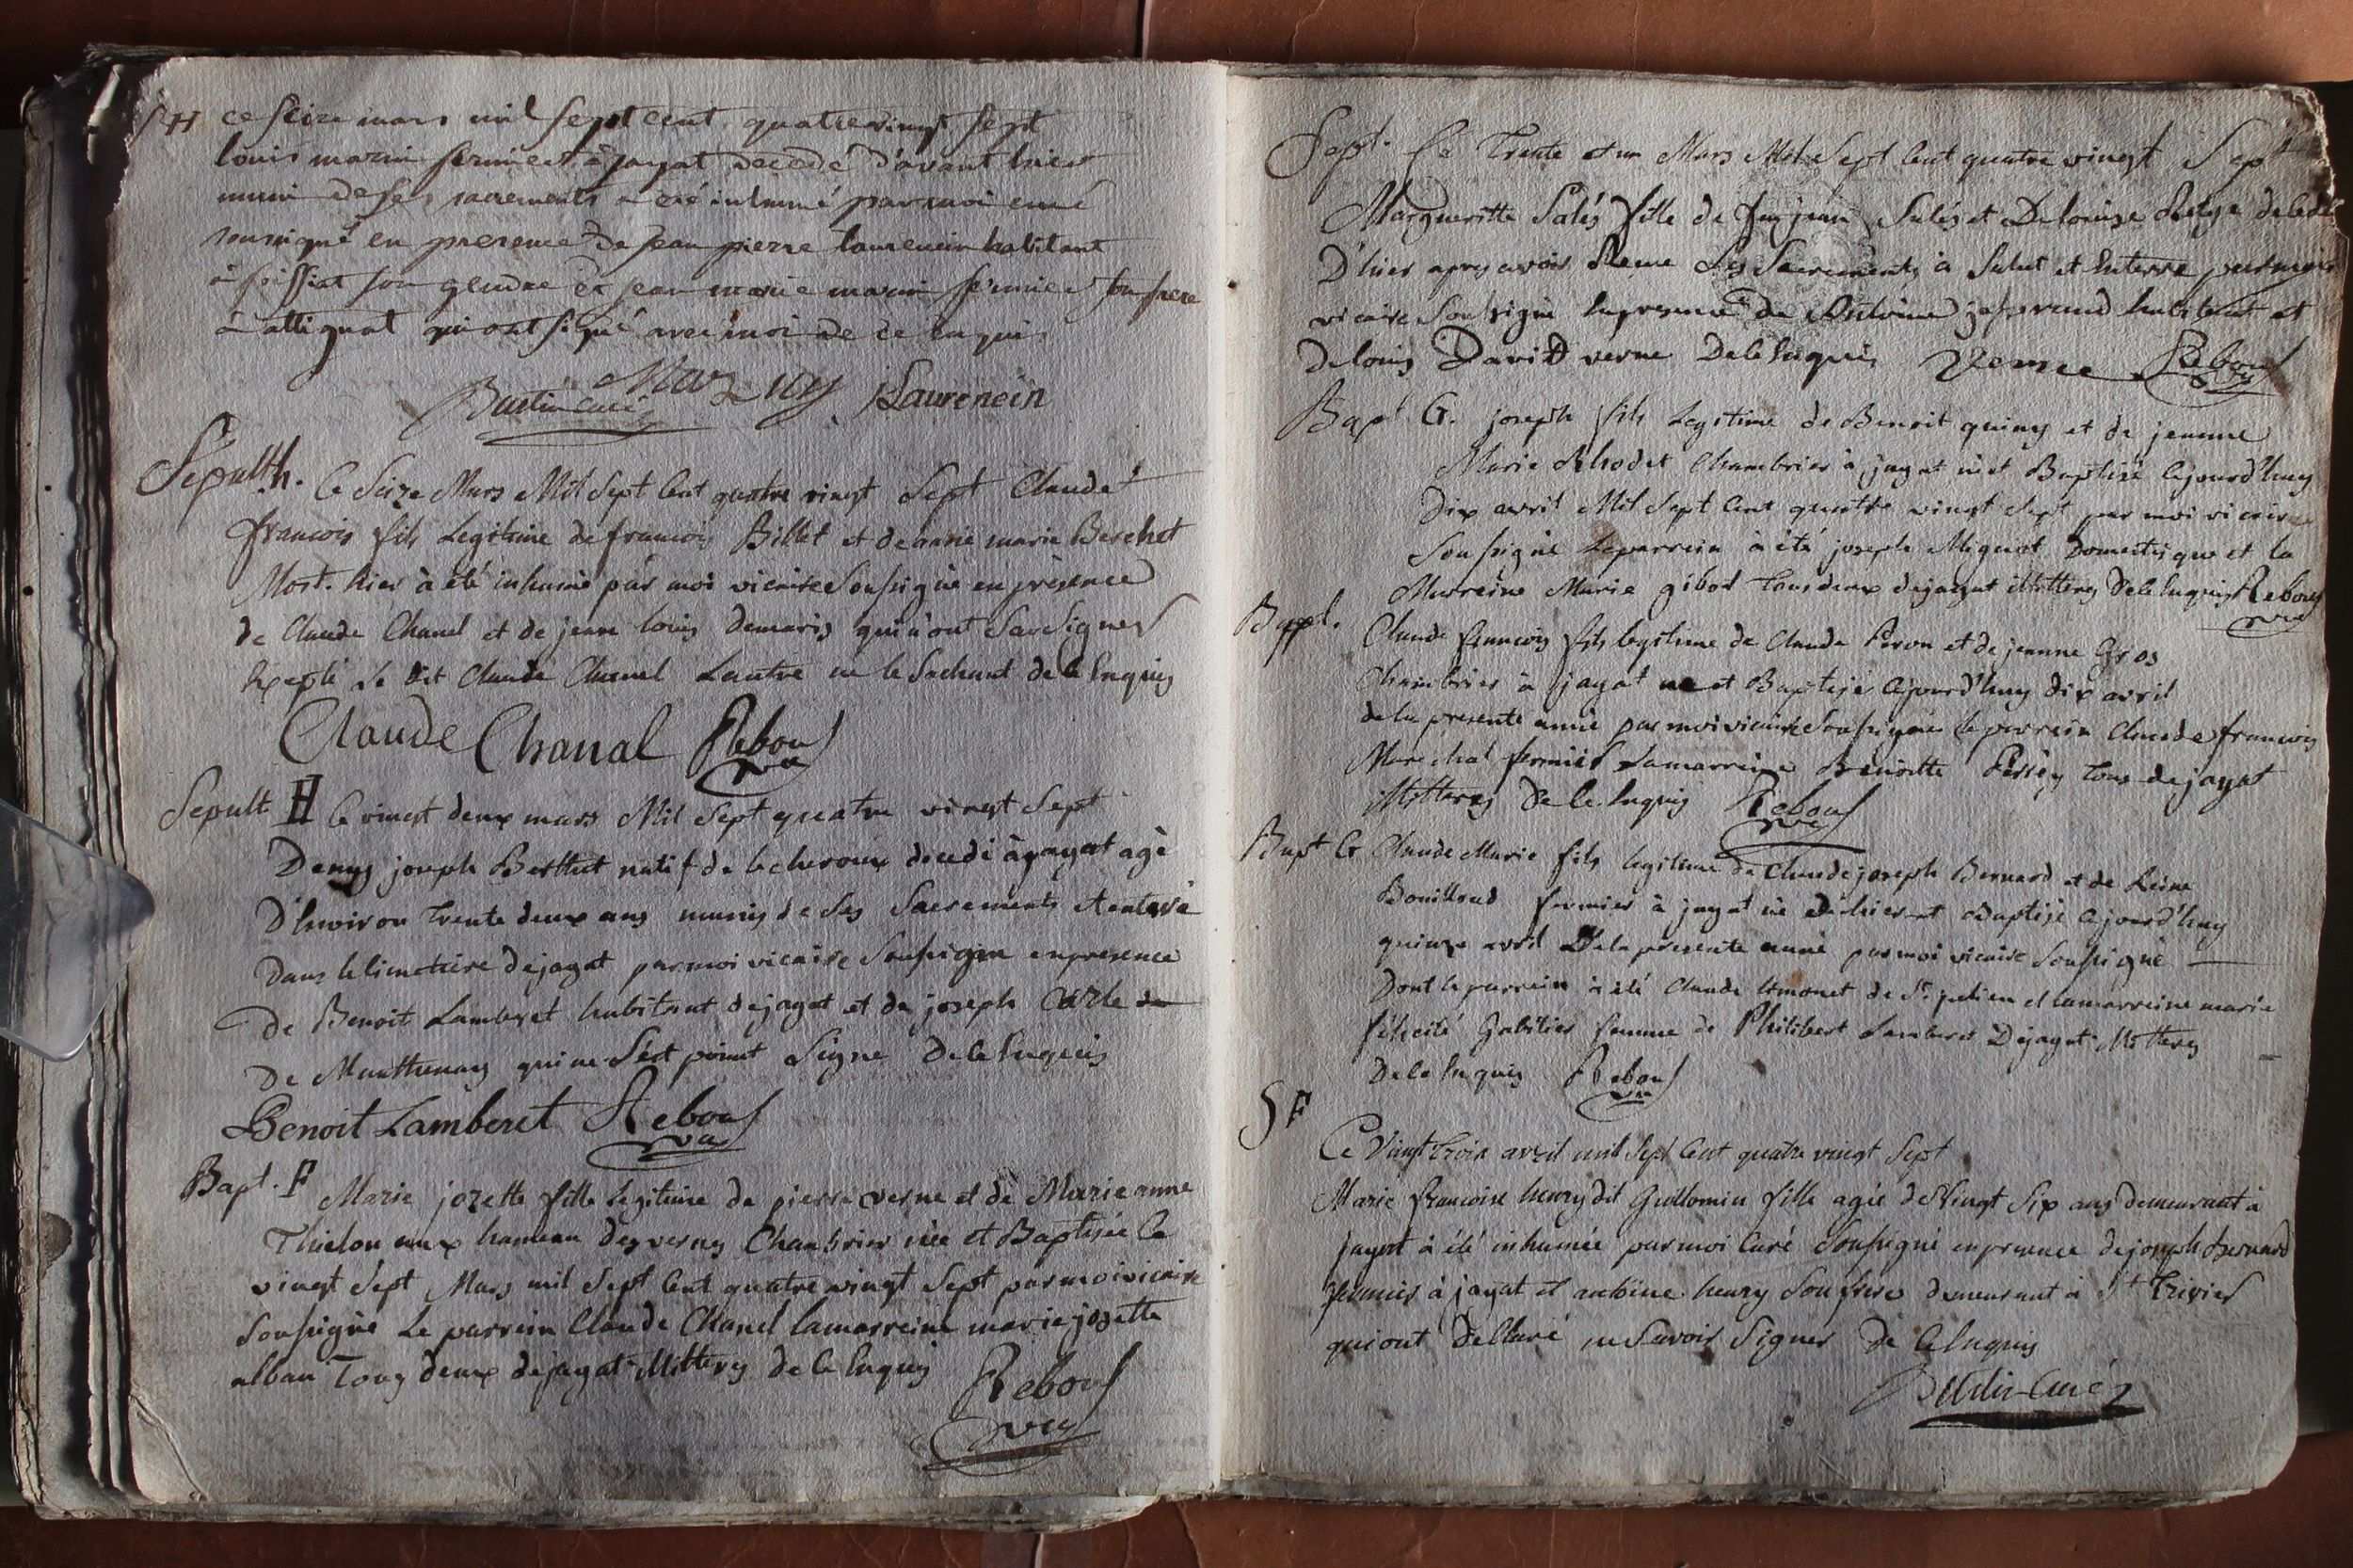 SH ce seize mars mil sept cent quatrevingt sept
louis marin fermier à jayat decedé d'avant hier
muni de ses sacrements a été inhumé par moi curé
soussigné en presence de jean pierre laurencin habitant
à foissiat son gendre et jean marie marin fermier son frere
à attignat qui ont signé avec moi de ce enquis
curé Laurencin
Sepulth. Ce Seize Mars Mil Sept Cent quatre vingt Sept Claude
francois fils Legitime de francois Billet et de anne marie Berchet
Mort hier à été inhumé par moi vicaire Soussigné en présence
de Claude Chanel et de jean louis demaris qui n'ont Sçu Signer
Excepté Le dit Claude Chanel Lautre ne le Sachant de ce Enquis
Claude Chanal Reboul
vic
Sepult H Ce vingt deux mars Mil Sept quatre vingt Sept
Denys joseph Berthet natif de lecheroux décedé à jayat agé
D'Environ trente deux ans munis de Ses Sacrements Et enterré
Dans le Cimetiere de jayat par moi vicaire Soussigné en presence
De Benoit Lamberet habitant de jayat et de joseph de
De qui ne S'est point Signe De ce Enquis
Benoit Lamberet Reboul
vic
Bapt. F Marie jozette fille Legitime de pierre verne et de Marie anne
Thielon aux hameau des vernes Chambrier née et Baptisée Ce
vingt Sept Mars mil Sept Cent quatre vingt Sept par moi vicaire
Soussigné Le parrein Claude Chanel la marreine marie jozette
alban Tous deux de jayat Illitterés de ce Enquis Reboul
vic
Sept. Ce Trente et un Mars Mil Sept Cent quatre vingt Sept
Margueritte Salés fille de jean Salés et De louise
D'hier apres avoir Recue Les Sacrements à Salut et Enterré par moi
vicaire Soussigné En presence de habitant et
De louis David verne De ce Enquis Verne Reboul
Bapt G. joseph fils Legitime de Benoit quiny et de jeanne
Marie Rhodet Chambrier à jayat né et Baptisé Cejourd'huy
Dix avril Mil Sept Cent quatre vingt Sept par moi vicaire
Soussigné Le parrein à été joseph Mignot Domestique et la
Marreine Marie gibod Tous deux de jayat Illitterés De ce Enquis Reboul
vic
Bapt. Claude francois fils legitime de Claude Peron et de jeanne Gros
Chambrier à jayat né et Baptisé Cejourd'huy dix avril
de la presente année par moi vicaire Soussigné le parrein Claude francois
Marechal fermier La marreine Benoitte Tous de jayat
Illitterés De ce Enquis Reboul
vic
Bapt G Claude Marie fils legitime de Claude joseph Bernard et de
Bouilloud fermier à jayat né d'hier et Baptisé Cejourd'huy
quinze avril De la presente année par moi vicaire Soussigné
Dont le parrein à été Claude de St. julien et la marreine marie
félicité Gabilier femme de Philibert Lamberet De jayat Illitterés
De ce Enquis Reboul
vic
SF
Ce Vingt trois avril mil Sept Cent quatre vingt Sept
Marie francoise henry dit Guillomin fille agée de Vingt Six ans demeurant à
jayat à été inhumée par moi Curé Soussigné en presence de joseph bernard
fermier à jayat et antoine henry Son frere demeurant à St Trivier
qui ont Dellaré ne Savoir Signer De Ce Enquis
Curé